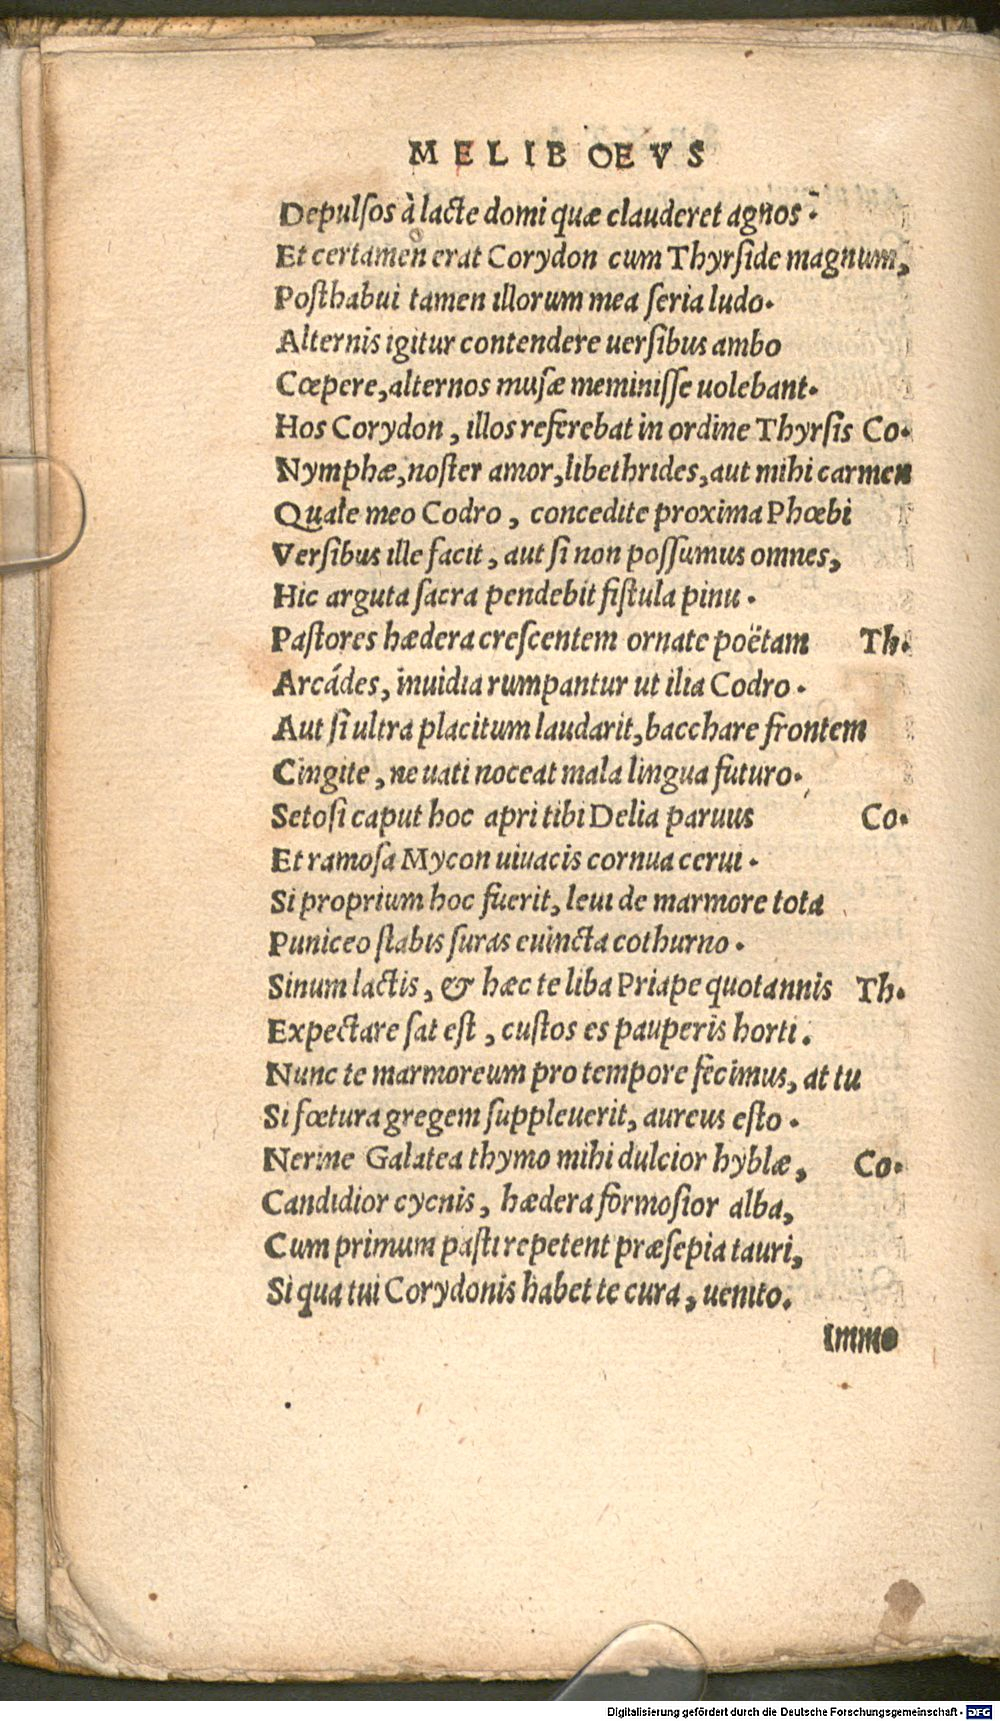 MELIBOEVS
Depulſos à lacte domi quæ clauderet agnos.
Et certamen erat Corydon cum Thyrſide magnum,
Poſthabui tamen illorum mea ſeria ludo.
Alternis igitur contendere uerſibus ambo
Cœpere, alternos muſæ meminiſſe uolebant.
Hos Corydon, illos referebat in ordine Thyrſis Co.
Nymphæ, noſter amor, libethrides, aut mihi carmen
Quale meo Codro, concedite proxima Phœbi
Verſibus ille facit, aut ſi non poſſumus omnes,
Hic arguta ſacra pendebit fiſtula pinu.
Paſtores hædera creſcentem ornate poëtam Th.
Arcádes, inuidia rumpantur ut ilia Codro.
Aut ſi ultra placitum laudarit, bacchare frontem
Cingite, ne uati noceat mala lingua futuro.
Setoſi caput hoc apri tibi Delia paruus Co.
Et ramoſa Mycon uiuacis cornua cerui.
Si proprium hoc fuerit, leui de marmore tota
Puniceo ſtabis ſuras euincta cothurno.
Sinum lactis, & hæc te liba Priape quotannis Th.
Expectare ſat eſt, cuſtos es pauperis horti.
Nunc te marmoreum pro tempore fecimus, at tu
Si fœtura gregem ſuppleuerit, aureus eſto.
Nerine Galatea thymo mihi dulcior hyblæ, Co.
Candidior cycnis, hædera formoſior alba,
Cum primum paſti repetent præſepia tauri,
Si qua tui Corydonis habet te cura, uenito.
Immo
Digitalisierung gefördert durch die Deutsche Forschungsgemeinschaft - DFG